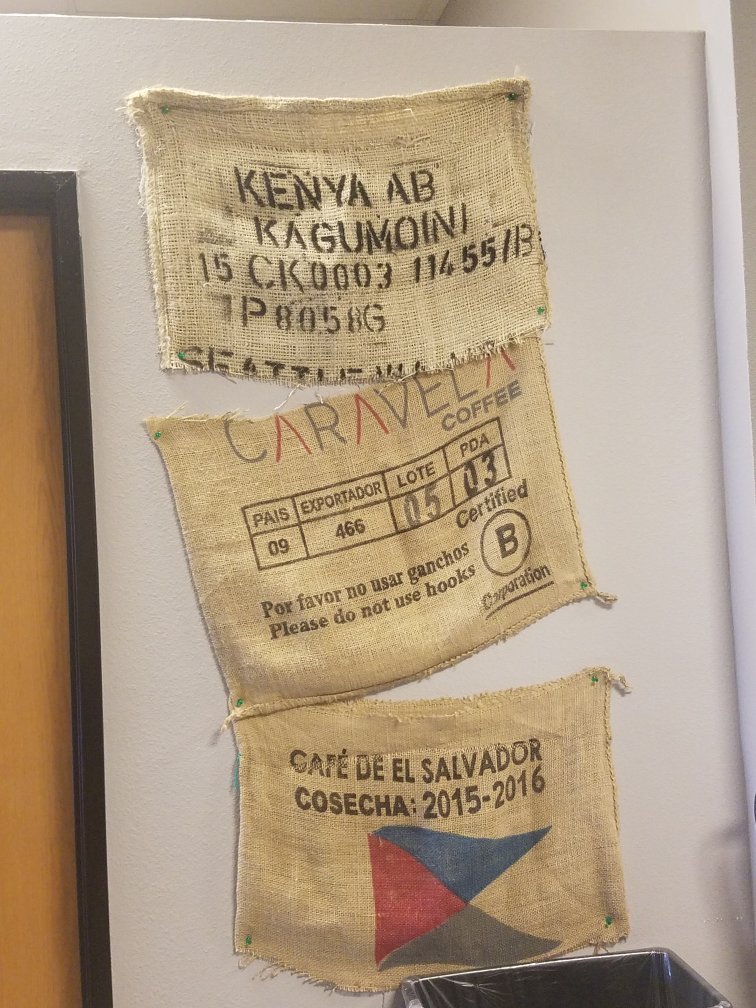 KENYA AB
KAGUMOINI
15 CK0003 11455/B
P8058G
SEATTLE WA
CARAVELA
COFFEE
PAIS EXPORTADOR LOTE PDA
09 466 05 03
Certified
B
Corporation
Por favor no usar ganchos
Please do not use hooks
CAFÉ DE EL SALVADOR
COSECHA: 2015-2016